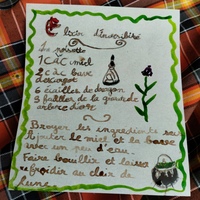 Elixir d'invisibilité
Une noisette
1 CAC miel
2 CàC bave
d'escargot
6 écailles de dragon
3 feuilles de la grande
arbre d'or
Broyer les ingrédients
ajouter le miel et la bave
avec un peu d'eau.
Faire bouillir et laisser
froidir au clair de
lune